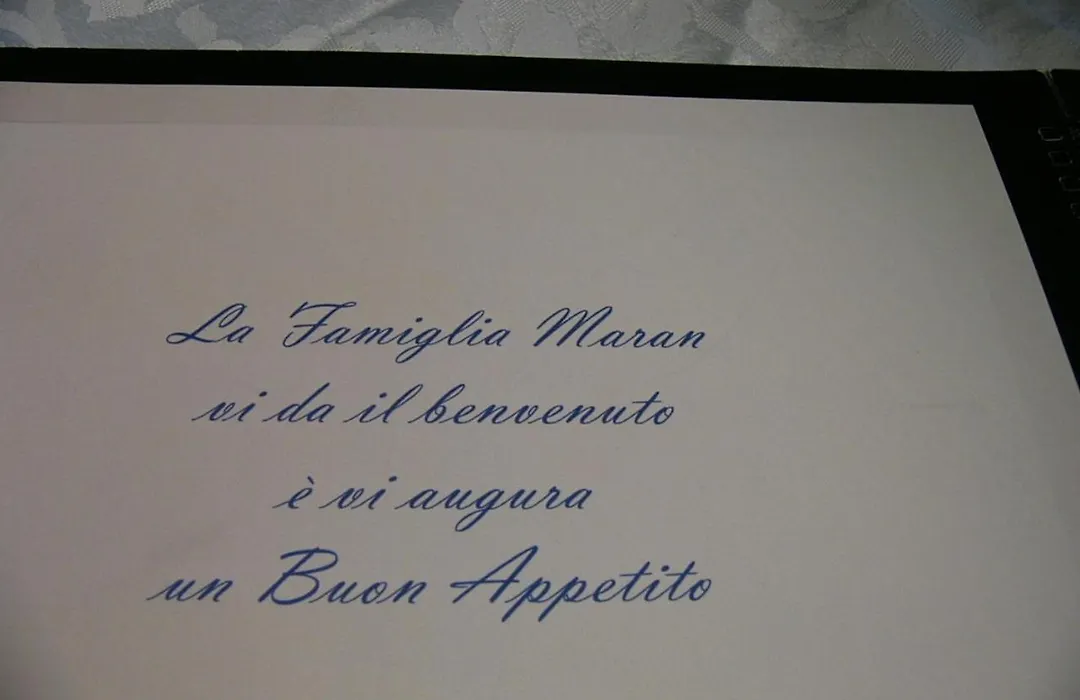 La Famiglia Maran
vi da il benvenuto
è vi augura
un Buon Appetito